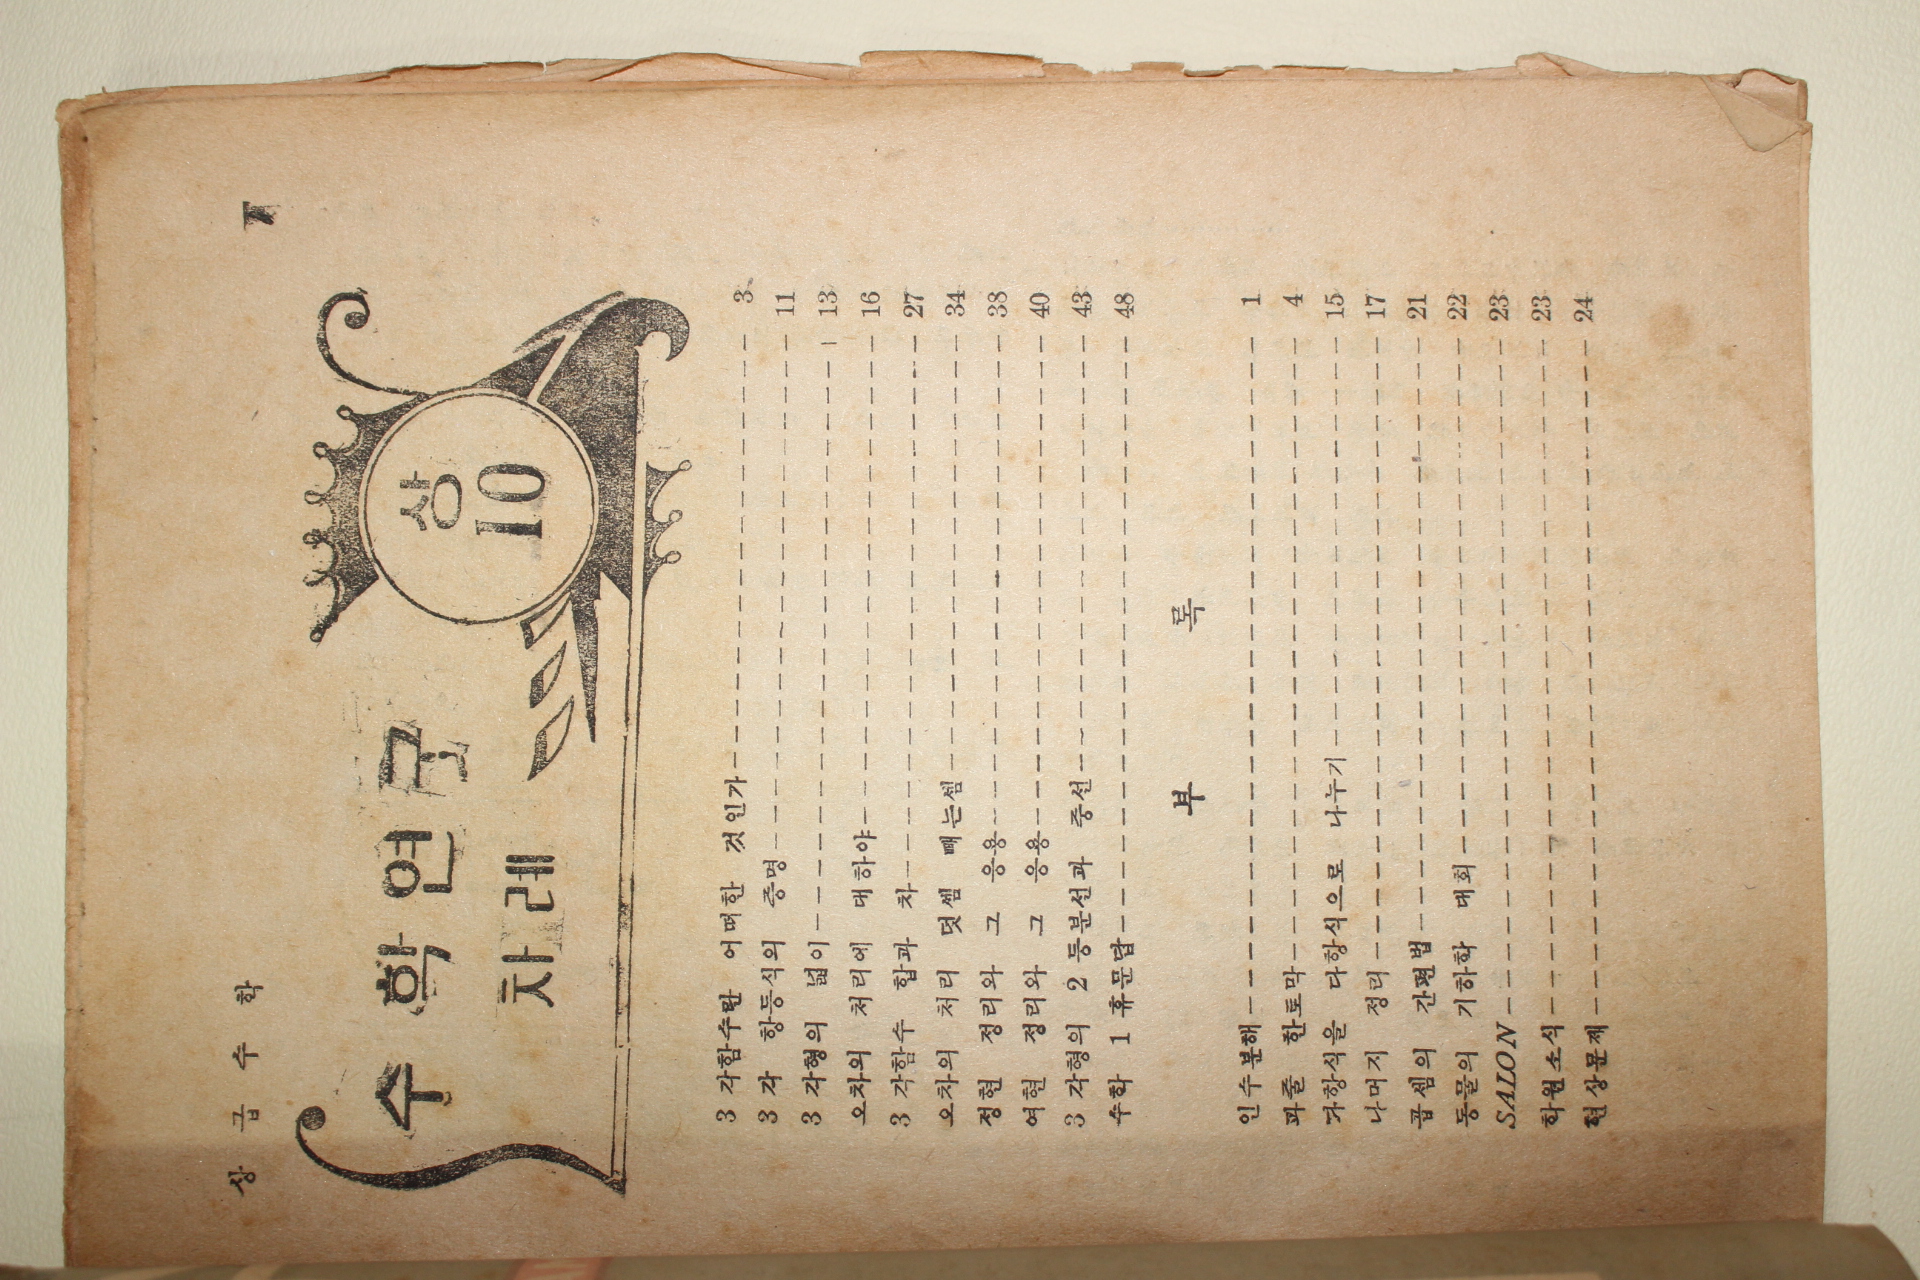 상 급 수 학
수 학 연 구
차 례
상
10
3 각함수란 어떠한 것인가 3
3 각 항등식의 증명 11
3 각형의 넓이 13
오차의 처리에 대하야 16
3 각함수 합과 차 27
오차의 처리 덧셈 빼는셈 34
정현 정리와 그 응용 38
여현 정리와 그 응용 40
3 각형의 2 등분선과 중선 43
수학 1 휴문답 48
부 록
인수분해 1
퍼즐 한토막 4
다항식을 다항식으로 나누기 15
나머지 정리 17
곱셈의 간편법 21
동물의 기하학 대회 22
SALON 23
학원소식 23
현상문제 24